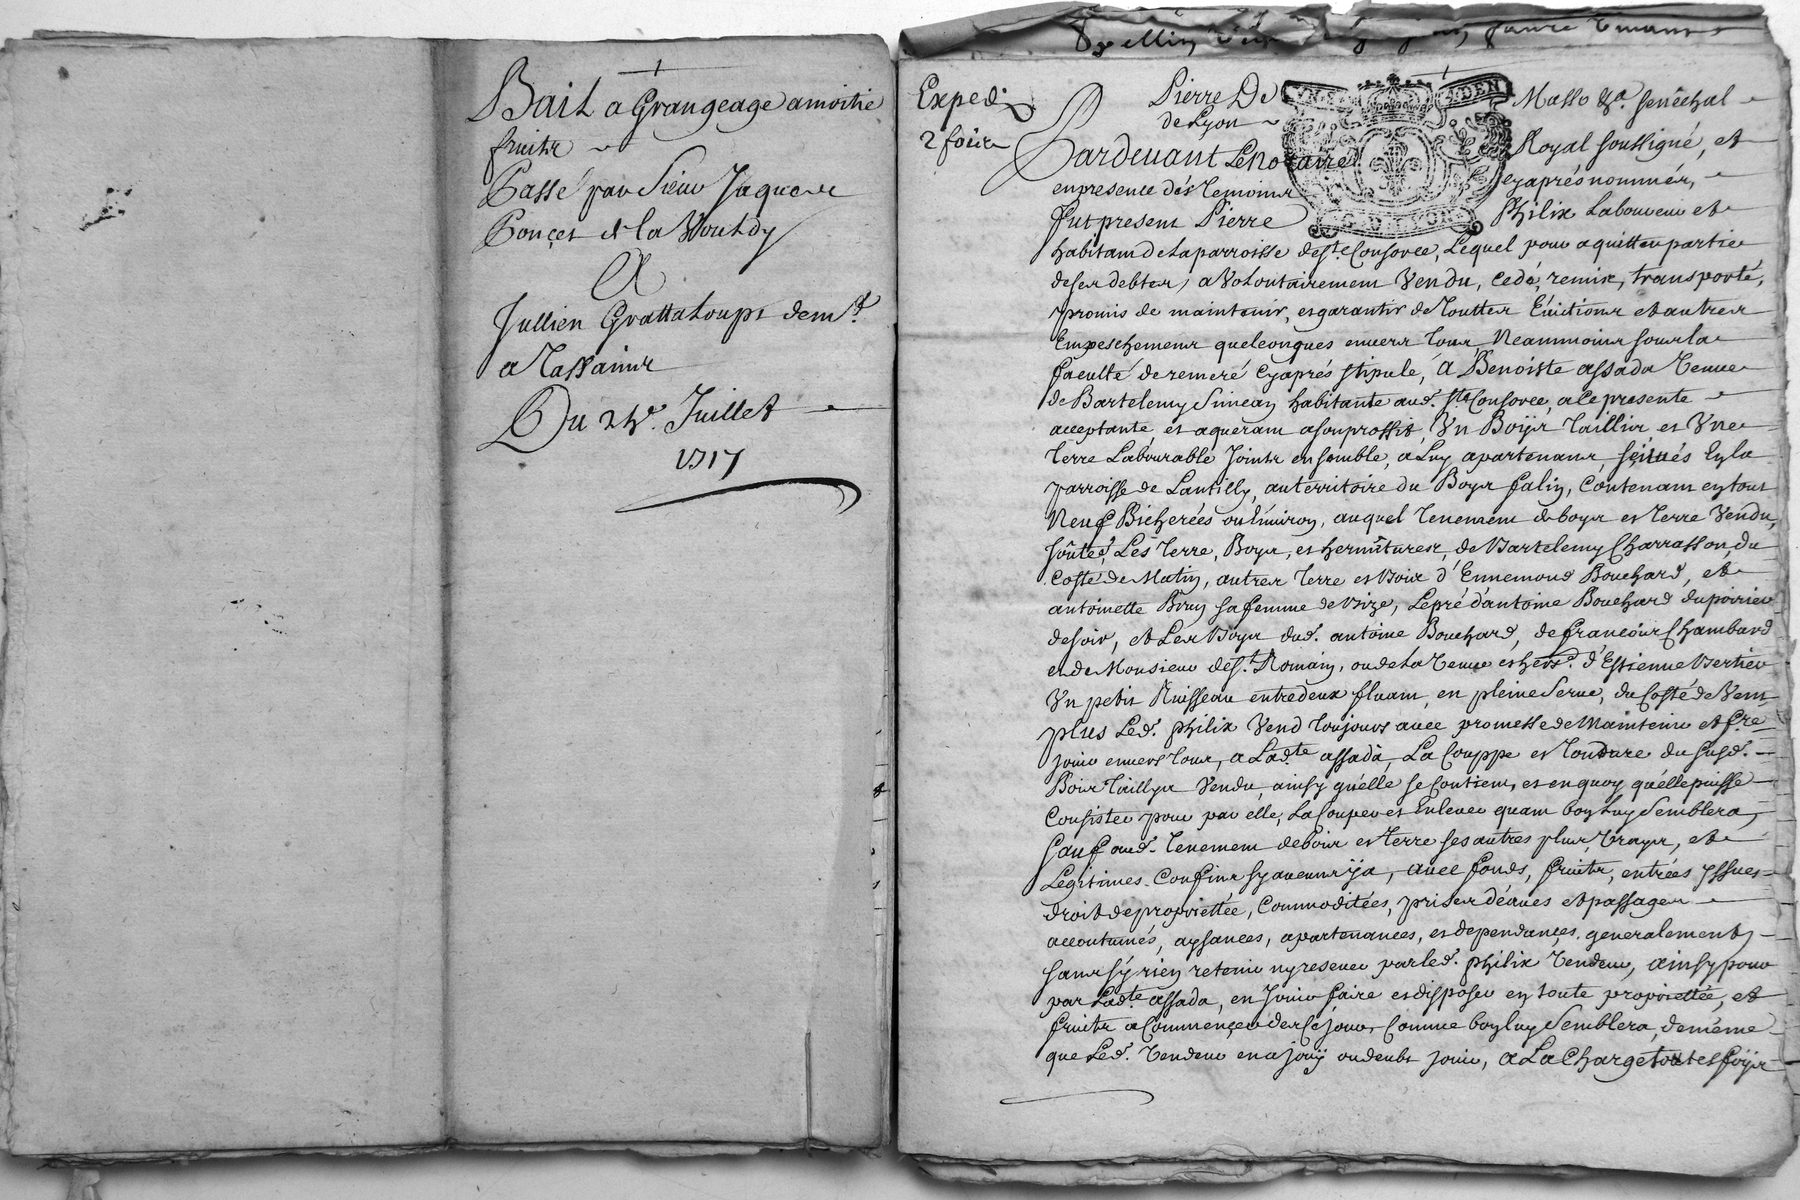 Bail a Grangeage a moitié
fruits
Passé par Sieur Jaques
Ponçet de la Vouldy
A
Jullien Grattaloups dem.t
a Tassains
Du 24e. Juillet
1717
Exped.
2 fois
Pierre De Masso &a. senéchal
de Lyon
Pardevant Le Notaire Royal soussigné, et
en presence dés temoins cy aprés nommés,
fut present Pierre Philix Laboureur et
habitant de la parroisse de ste. Consorce, Lequel pour aquitter partie
de ses debtes, a volontairement Vendu, cedé, remis, transporté,
promis de maintenir, et garantir de touttes Évictions et autres
Empeschemens quelconques envers tous, Neammoins sous la
faculté de remeré cy aprés stipulé, A Benoiste assada veuve
de Bartelemy Simean habitante aud. ste Consorce, a ce presente
acceptante et aquerant a son proffit, Un Boys taillis et Une
terre Labourable Joints ensemble, a Luy apartenans, sçitués En la
parroisse de Lantilly, au territoire du Boys falin, Contenant en tout
Neuf Bicherées ou Environ, auquel tenement de boys et terre Vendu,
joûte, Les terre, Boys, et hermitures, de Bartelemy Charrasson, du
Costé de Matin, autres terre et bois d'Ennemond Bouchard, et
antoinette Brun sa femme de bize, Le pré d'antoine Bouchard du poirier
de soir, et Les Boys dud. antoine Bouchard, de francois Chambard
et de Monsieur de St. Romain, ou de la veuve et hers. d'Estienne Vertier
Un petit Ruisseau entredeux fluant, en pleine Serve, du Costé de Vent
plus Led. philix Vend toujours avec promesse de Maintenir et fre
jouir envers tous, a Ladte assada, La Couppe et tondure du susd.
Bois taillys Vendu, ainsy qu'elle se Contient, et en quoy qu'elle puisse
Consister pour par elle, La Couper et Enlever quant bon Luy Semblera,
sauf aud. tenement de bois et terre ses autres plus Vrays, et
Legitimes Confins sy aucuns y a, avec fonds, fruits, entrées yssues
droit de proprietée, Commoditées, prises d'eaues et passages
accoutumés, aysances, apartenances, et dependances generalement
sans sy rien retenir ny reserver par led. philix Vendeur, ainsy pour
par Ladte assada, en Jouir faire et disposer en toute proprietée, et
fruits a Commencer de Ce jour, Comme bon luy Semblera, de même
que Led. Vendeur en a jouÿ ou deubt jouir, a La Charge toutes foys